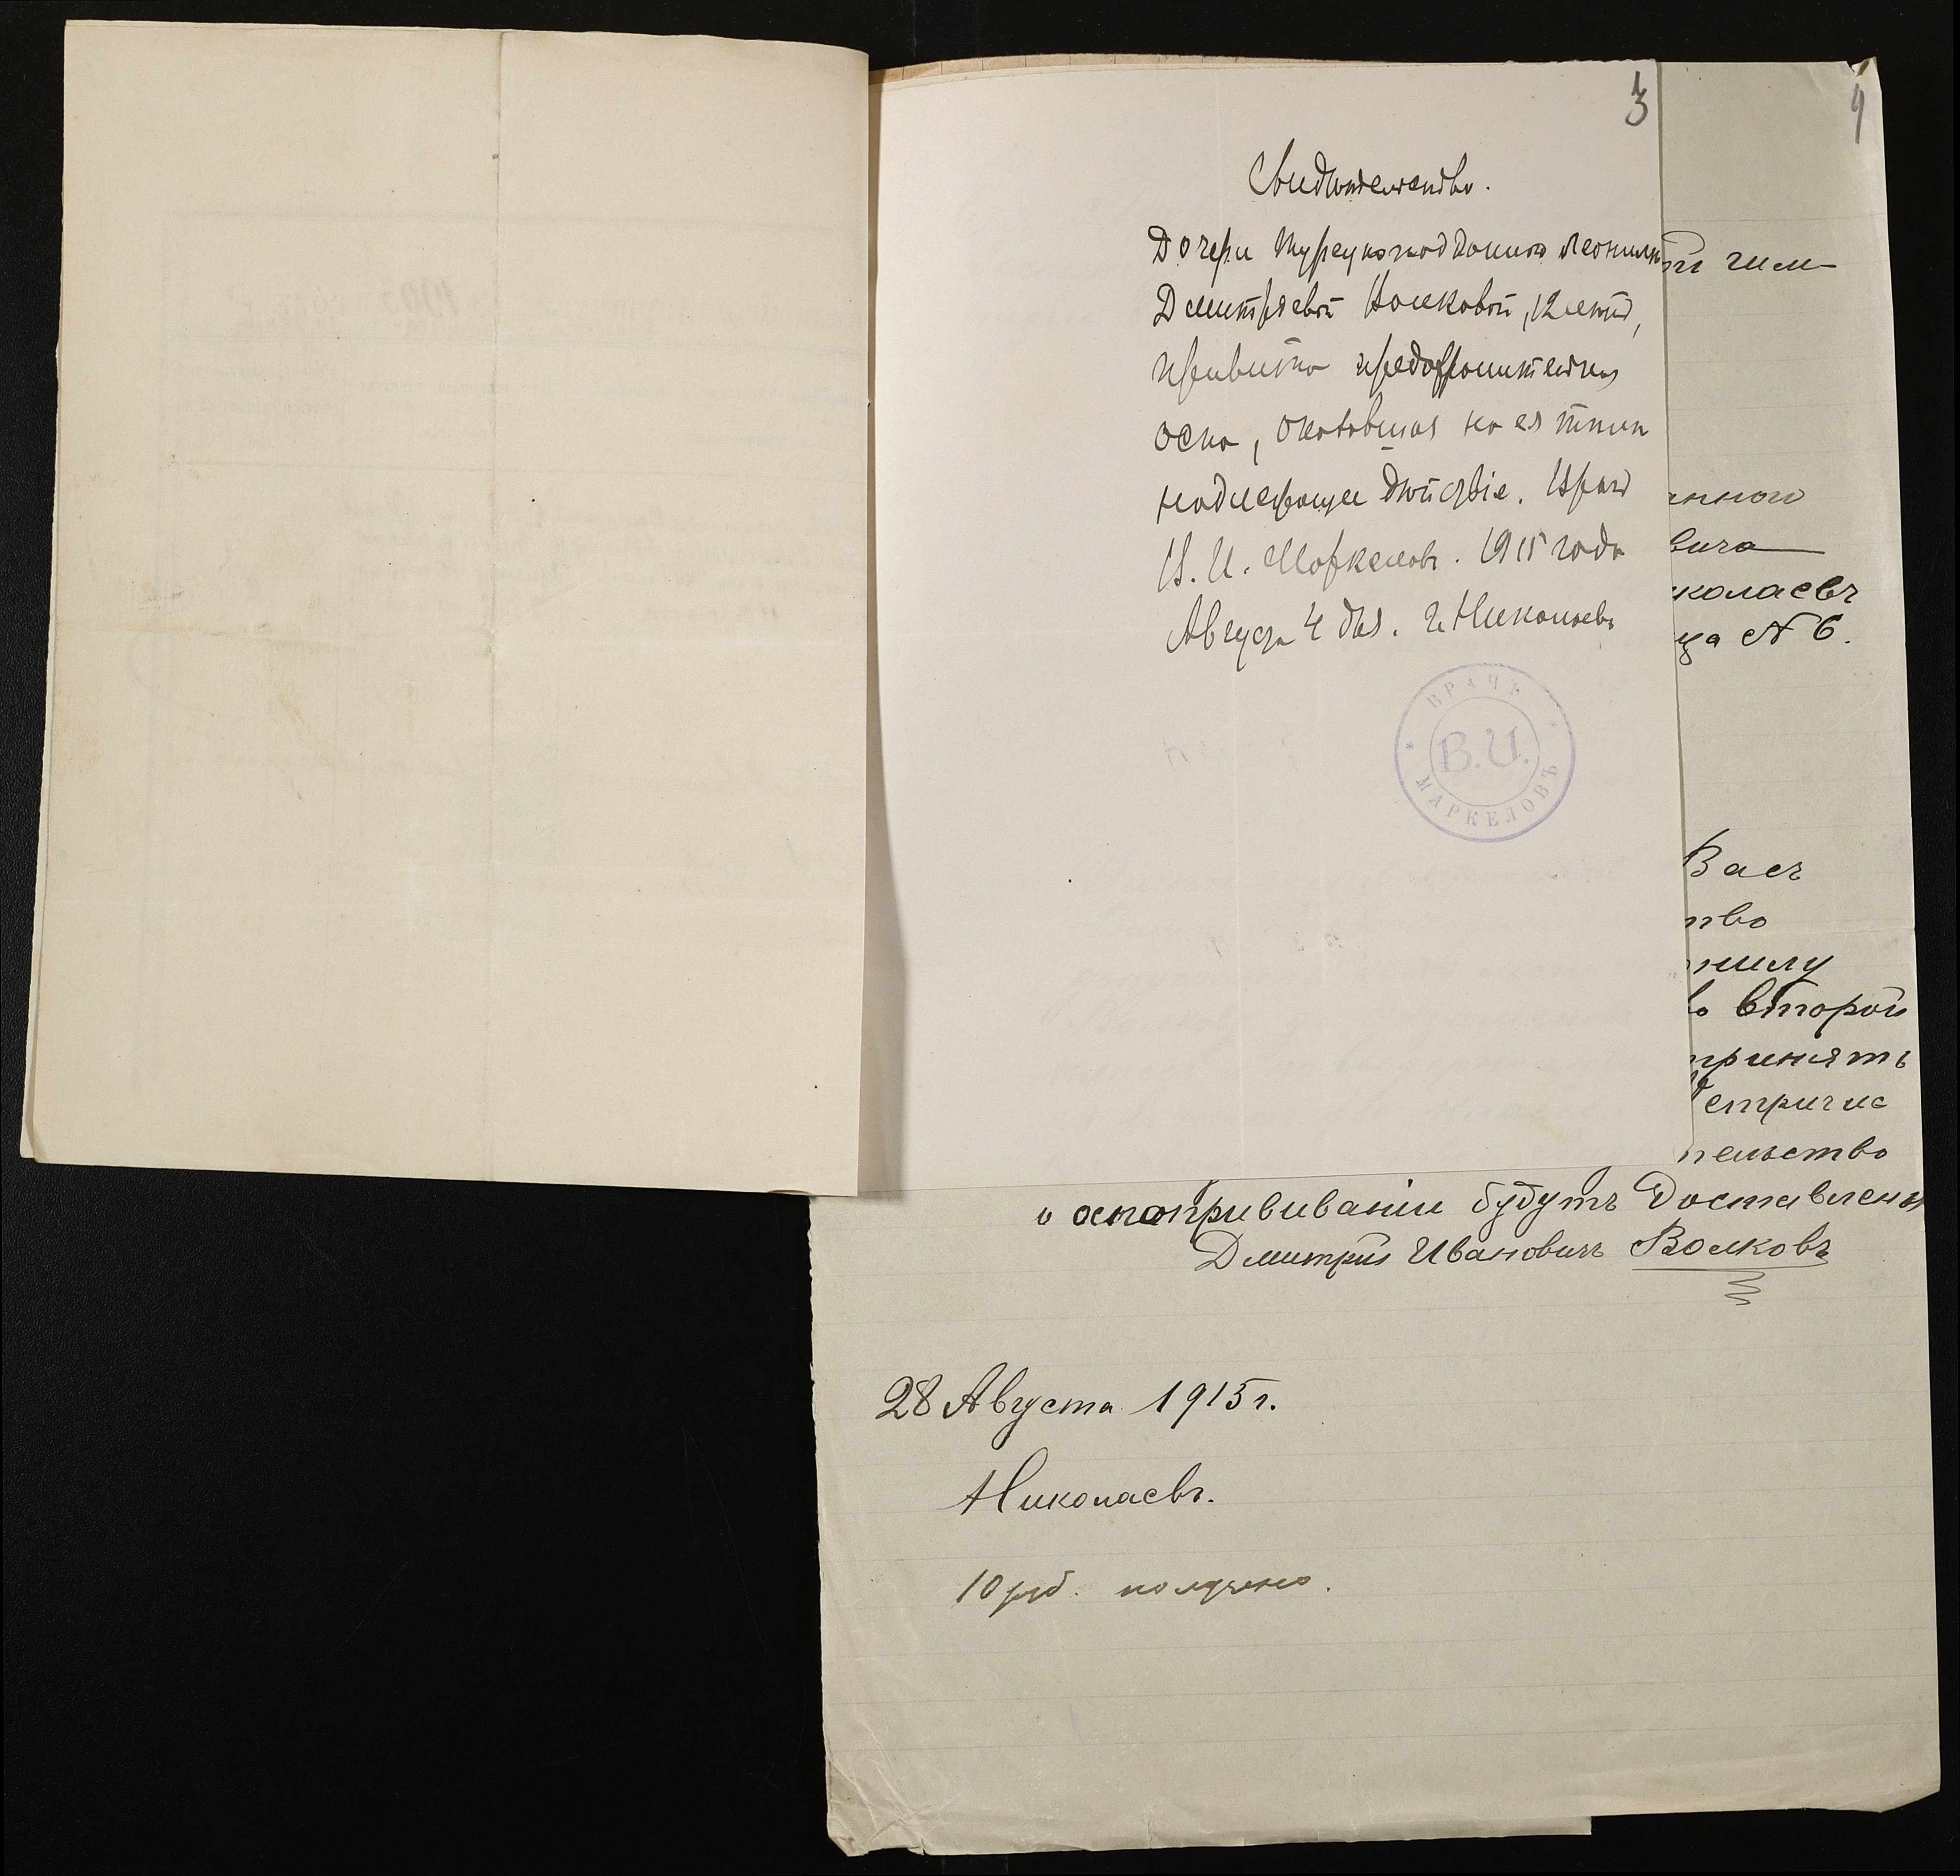 3
Свидѣтельство.
Дочери турецкоподданного Леониллѣ
Дмитріевой Волковой, 12 лѣтъ,
привита предохранительная
оспа, оказавшая на ея тѣлѣ
надлежащее дѣйствіе. Врачъ
В. И. Маркеловъ. 1915 года
Августа 4 дня. г. Николаевъ
ВРАЧЪ
В.И.
МАРКЕЛОВЪ
4
ой гим-
вича
иколаевъ
ца № 6.
Васъ
тво
нилу
во второй
принять
Метричес
тельство
о оспопрививаніи будутъ доставлены
Дмитрій Ивановичъ Волковъ
28 Августа 1915 г.
Николаевъ.
10 руб. получено.